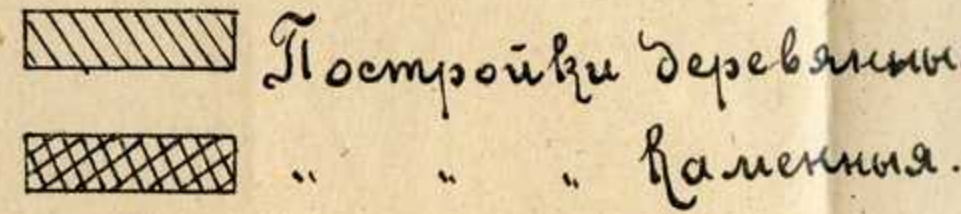 Постройки деревянны
„ „ „ каменныя.